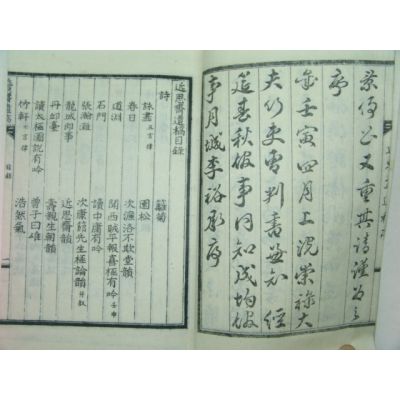 景傳公又重其請謹為之
序
歲壬寅四月上浣崇祿大
夫行吏曹判書兼知經
筵春秋館事同知成均館
事月城李裕承序
近思齋遺稿目錄
詩
詠書 五言律
春日
道淵
石門
張瀚灘
龍城向事
丹邱臺
讀太極圖說有吟
竹軒 七言律
籬菊
園松
次濂洛不欺堂韻
関西賊平報喜極有吟 壬申
讀中庸有吟
次康節先生極論韻
近思齋韻
壽親生朝韻
曾子曰唯
浩然氣